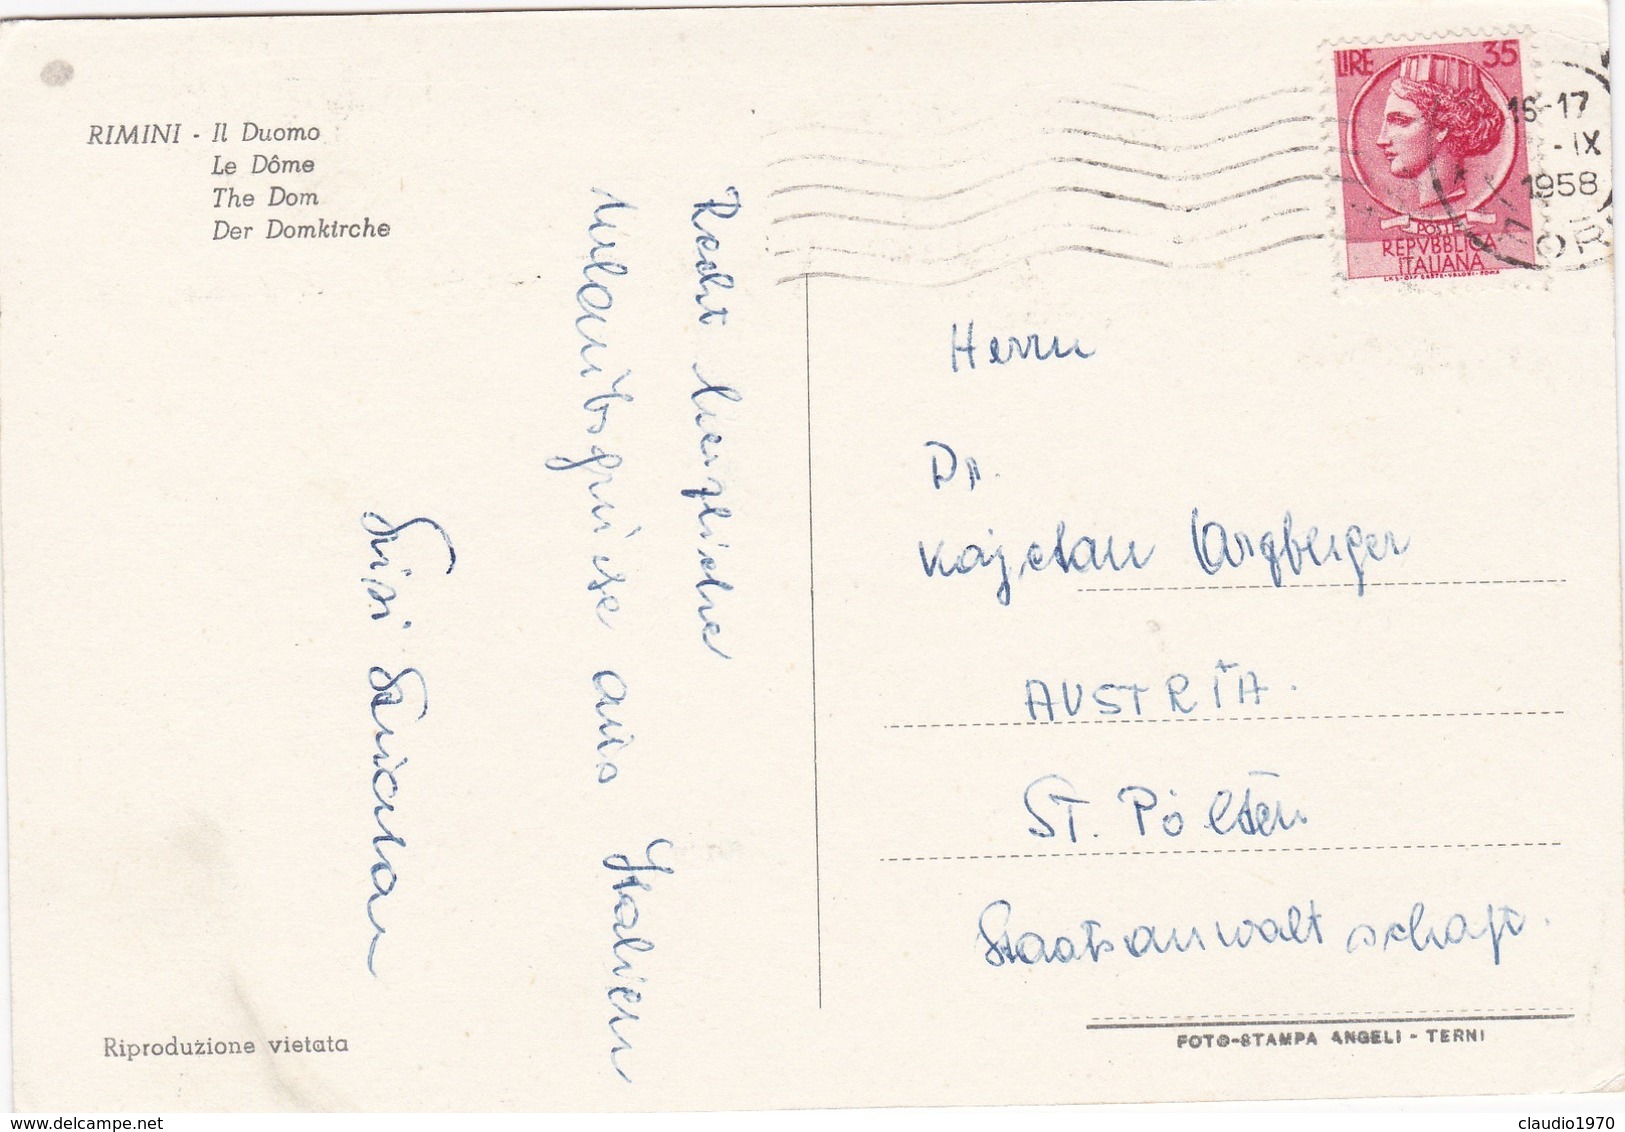 RIMINI - Il Duomo
Le Dôme
The Dom
Der Domkirche
Recht herzliche
Urlaubsgrüsse aus Italien
Sisi
Riproduzione vietata
LIRE 35
POSTE
REPVBBLICA
ITALIANA
16-17
-IX
1958
Herrn
Dr.
Kajetan
AUSTRIA.
St. Pölten
Staatsanwaltschaft.
FOTO-STAMPA ANGELI - TERNI
claudio1970